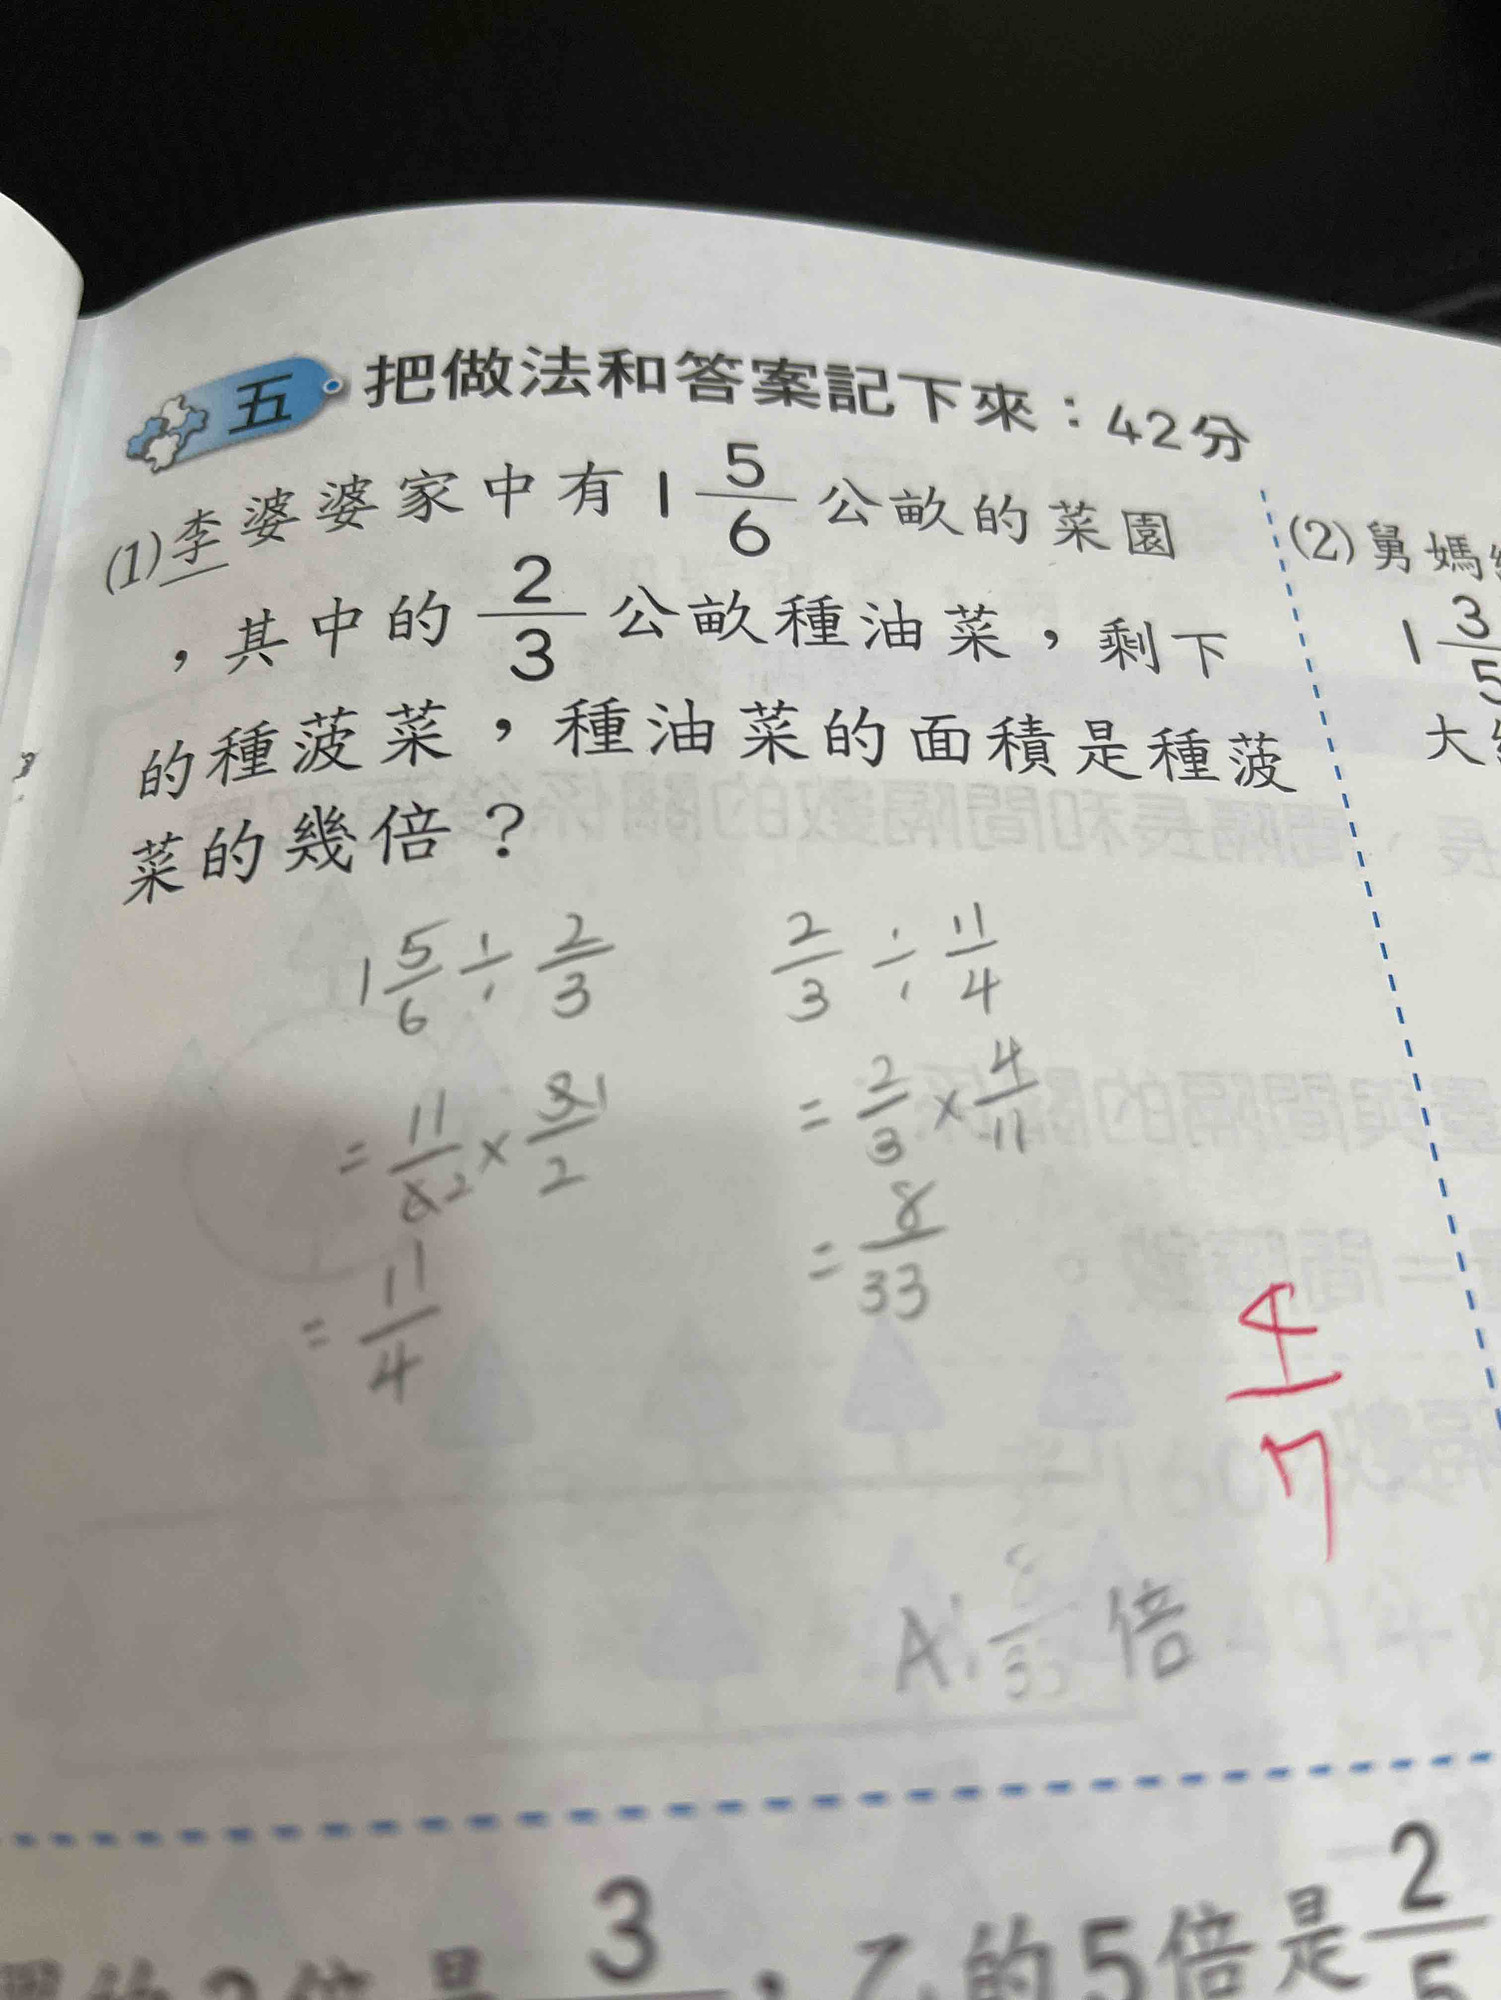 五 把做法和答案記下來：42分
(1)李婆婆家中有1 5/6 公畝的菜園
，其中的 2/3 公畝種油菜，剩下
的種菠菜，種油菜的面積是種菠
菜的幾倍？
1 5/6 ÷ 2/3
= 11/6 2 × 3 1/2
= 11/4
2/3 ÷ 11/4
= 2/3 × 4/11
= 8/33
4/7
A: 8/33 倍
(2)舅媽
1 3/5
大
3
，乙的5倍是 2/5